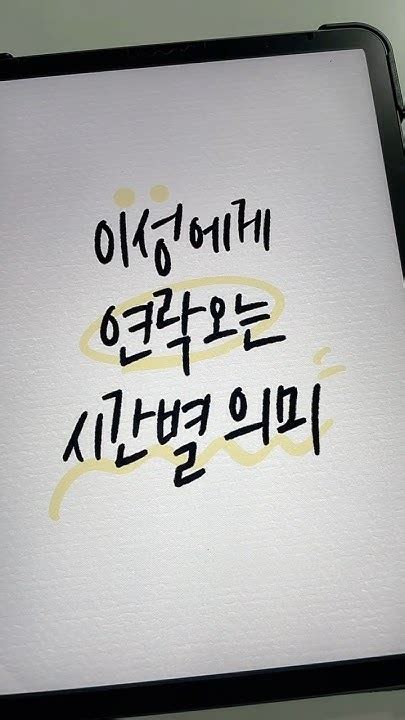 이성에게
연락오는
시간별 의미